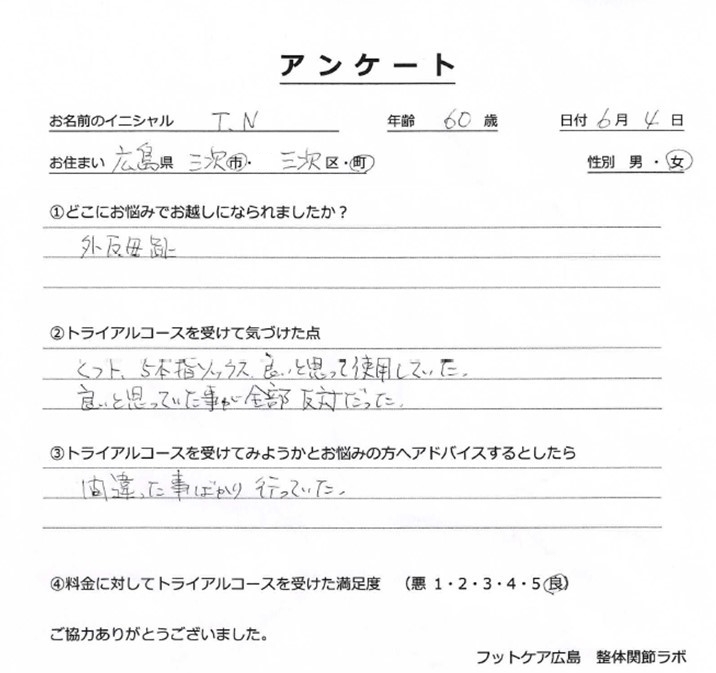 アンケート
お名前のイニシャル T.N 年齢 60 歳 日付 6 月 4 日
お住まい 広島 県 三次 市・ 三次 区・町 性別 男 ・ 女
①どこにお悩みでお越しになられましたか？
外反母趾
②トライアルコースを受けて気づけた点
5本指ソックス 良いと思って使用していた。
良いと思っていた事が全部反対だった。
③トライアルコースを受けてみようかとお悩みの方へアドバイスするとしたら
間違った事ばかり行っていた。
④料金に対してトライアルコースを受けた満足度 （悪 1・2・3・4・5 良）
ご協力ありがとうございました。
フットケア広島 整体関節ラボ